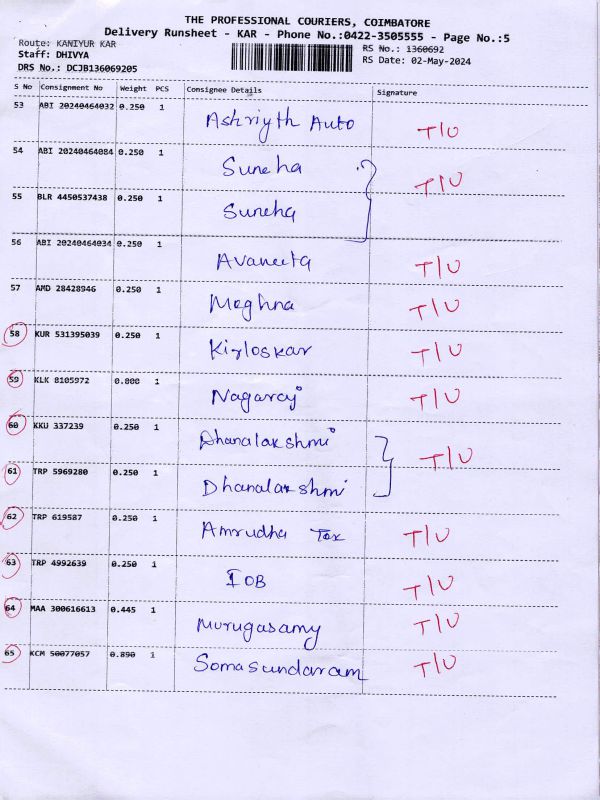 THE PROFESSIONAL COURIERS, COIMBATORE
Delivery Runsheet - KAR - Phone No.:0422-3505555 - Page No.:5
Route: KANIYUR KAR
RS No.: 1360692
Staff: DHIVYA
RS Date: 02-May-2024
DRS No.: DCJB136069205
S No Consignment No Weight PCS Consignee Details Signature
53 ABI 20240464032 0.250 1 Ashriyth Auto T/U
54 ABI 20240464084 0.250 1 Suneha T/U
55 BLR 4450537438 0.250 1 Suneha
56 ABI 20240464034 0.250 1 Avaneeta T/U
57 AMD 28428946 0.250 1 Meghna T/U
58 KUR 531395039 0.250 1 Kirloskar T/U
59 KLK 8105972 0.800 1 Nagaraj T/U
60 KKU 337239 0.250 1 Dhanalakshmi T/U
61 TRP 5969280 0.250 1 Dhanalakshmi
62 TRP 619587 0.250 1 Amrudha Tex T/U
63 TRP 4992639 0.250 1 IOB T/U
64 MAA 300616613 0.445 1 Murugasamy T/U
65 KCM 50077057 0.890 1 Somasundaram T/U